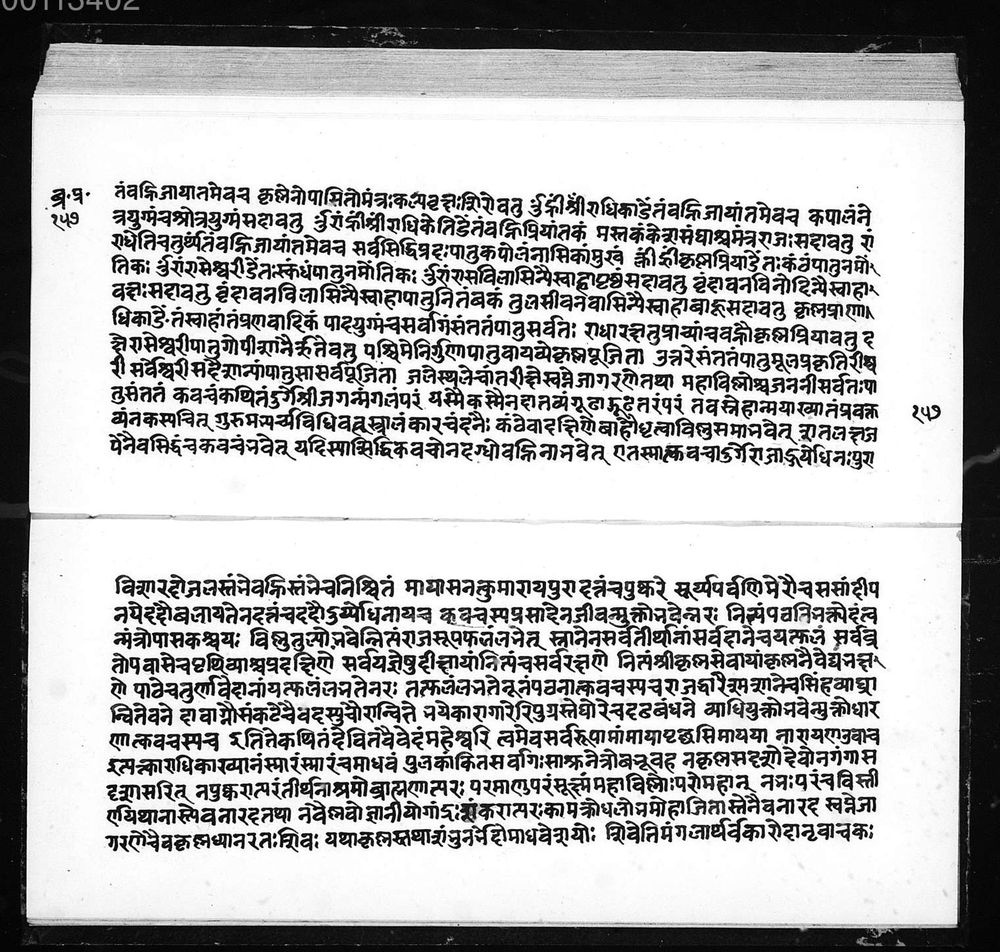 00113402
तंवह्निजायांतमेवच कृष्णेनोपासितोमंत्रःकल्पवृक्षःशिरोवतु ॐह्रींश्रींराधिकाङेंतंवह्निजायांतमेवच कपालंने
ब्र॰प्र॰
१५७
त्रयुग्मंचश्रोत्रयुग्मंसदावतु ॐरांह्रींश्रींराधिकेतिङेंतंवह्निप्रियांतकं मस्तकंकेशसंघाश्चमंत्रराजःसदावतु रां
राधेतिचतुर्थ्यंतंवह्निजायांतमेवच सर्वसिद्धिप्रदःपातुकपोलंनासिकांमुखं क्लींह्रींकृष्णप्रियाङेंतःकंठंपातुनमों
तिकः ॐरांरासेश्वरीङेंतःस्कंधंपातुनमोंतिकः ॐरांरासविलासिन्यैस्वाहापृष्ठंसदावतु वृंदावनविनोदिन्यैस्वाहा
वक्षःसदावतु वृंदावनविलासिन्यैस्वाहापातुनितंबकं तुलसीवनवासिन्यैस्वाहाबाहूसदावतु कृष्णप्राणा
धिकाङेंतंस्वाहांतंप्रणवादिकं पादयुग्मंचसर्वांगंसंततंपातुसर्वतः राधारक्षतुप्राच्यांचवह्नौकृष्णप्रियावतु द
क्षेरासेश्वरीपातुगोपीशानैर्ऋतेवतु पश्चिमेनिर्गुणापातुवायव्येकृष्णपूजिता उत्तरेसंततंपातुमूलप्रकृतिरीश्व
री सर्वेश्वरीसदैशान्यांपातुमासर्वपूजिता जलेस्थलेचांतरीक्षेस्वप्नेजागरणेतथा महाविष्णोश्चजननीसर्वतःपा
तुसंततं कवचंकथितंदुर्गेश्रीजगन्मंगलंपरं यस्मैकस्मैनदातव्यंगूढाद्गूढतरंपरं तवस्नेहान्मयाख्यातंप्रवक्त
१५७
व्यंनकस्यचित् गुरुमभ्यर्च्यविधिवत्वस्त्रालंकारचंदनैः कंठेवादक्षिणेबाहौधृत्वाविष्णुसमोभवेत् शतलक्षज
पेनैवसिद्धंचकवचंभवेत् यदिस्यात्सिद्धिकवचोनदग्धोवह्निनाभवेत् एतस्मात्कवचाद्दुर्गेराजादुर्योधनःपुरा
विशारदोजलस्तंभेवह्निस्तंभेचनिश्चितं मायासनत्कुमारायपुरादत्तंचपुष्करे सूर्य्यपर्वणिमेरौचससांदीप
नयेददौबलायतेनदत्तंचददौदुर्योधनायच कवचस्यप्रसादेनजीवन्मुक्तोभवेन्नरः नित्यंपठतिभक्त्येदंत
न्मंत्रोपासकश्चयः विष्णुतुल्योभवेन्नित्यंराजसूयफलंलभेत् स्नानेनसर्वतीर्थानांसर्वदानेचयत्फलं सर्वव्र
तोपवासेचपृथिव्याश्चप्रदक्षिणे सर्वयज्ञेषुदीक्षायांनित्यंचसर्वरक्षणे नित्यंश्रीकृष्णसेवायांकृष्णनैवेद्यभक्ष
णे पाठेचतुर्णांवेदानांयत्फलंलभतेनरः तत्फलंलभतेनूनंपठनात्कवचस्यच राजद्वारेश्मशानेचसिंहव्याघ्रा
न्वितेवने दावाग्नौसंकटेचैवदस्युचौरान्विते भयेकारागारेरिपुग्रस्तेघोरेचदृढबंधने व्याधियुक्तोभवेन्मुक्तोधार
णात्कवचस्यच इतितेकथितंदेवितवैवेदंमहेश्वरि त्वमेवसर्वरूपामांमायापृच्छसिमायया नारायणउवाच
इत्युक्त्काराधिकाख्यानंस्मारंस्मारंचमाधवं पुलकांकितसर्वांगःसाश्रुनेत्रोबभूवह नकृष्णसदृशोदेवोनगंगास
दृशासरित् नपुष्करात्परंतीर्थंनाश्रमोब्राह्मणात्परः परमाणुपरंसूक्ष्मंमहाविष्णोःपरोमहान् नभःपरंचविस्ती
र्णंयथानास्त्येवनारदतथा नवैष्णवोज्ञानीयोगींद्रःशंकरात्परःकामक्रोधलोभमोहाजितास्तेनैवनारद स्वप्नेजा
गरणेचैवकृष्णध्यानरतःशिवः यथाकृष्णस्तथाशंभुर्नभेदोमाधवेशयोः शिवेतिमंगलार्थंवकारोदातृवाचकः